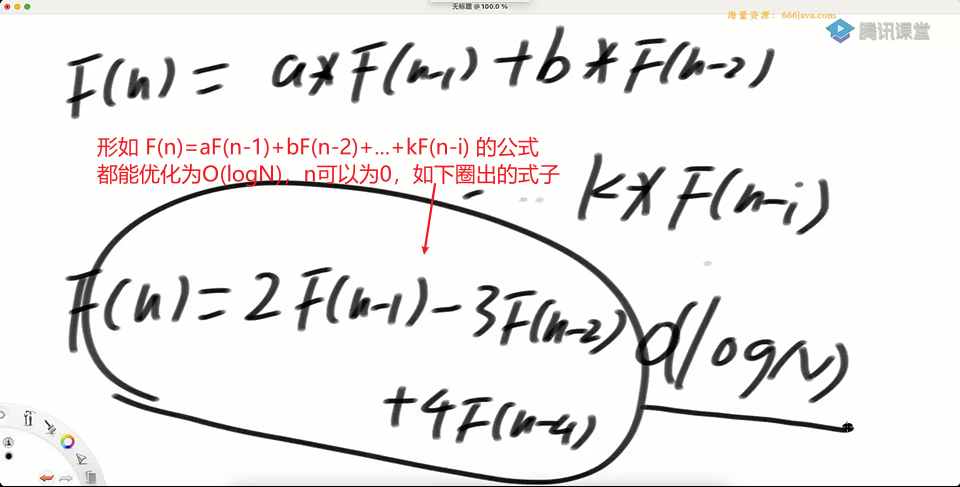 无标题 @ 100.0 %
海量资源：666java.com
腾讯课堂
F(n) = a*F(n-1) + b*F(n-2)
形如 F(n)=aF(n-1)+bF(n-2)+...+kF(n-i) 的公式
都能优化为O(logN)，n可以为0，如下圈出的式子
k*F(n-i)
F(n) = 2F(n-1) - 3F(n-2)
O(logN)
+4F(n-4)